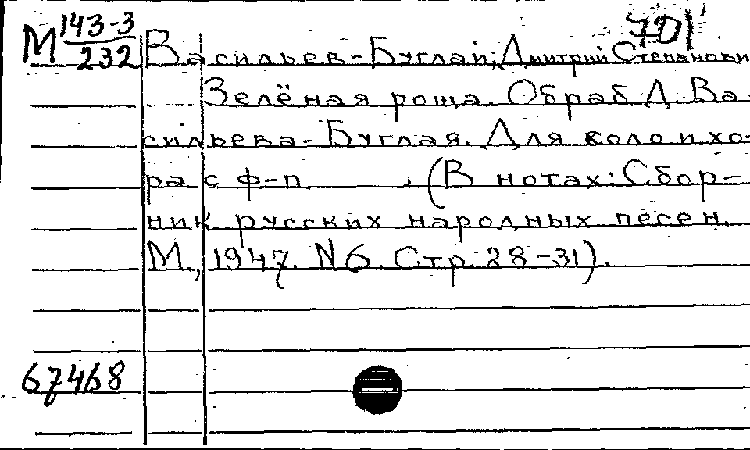 701
М 143-3/232 Васильев-Буглай, Дмитрий Степанови
Зелёная роща. Обраб. Д. Ва-
сильева-Буглая. Для соло и хо-
ра с ф-п. (В нотах: Сбор-
ник русских народных песен.
М., 1947. N6. Стр. 28-31).
67468